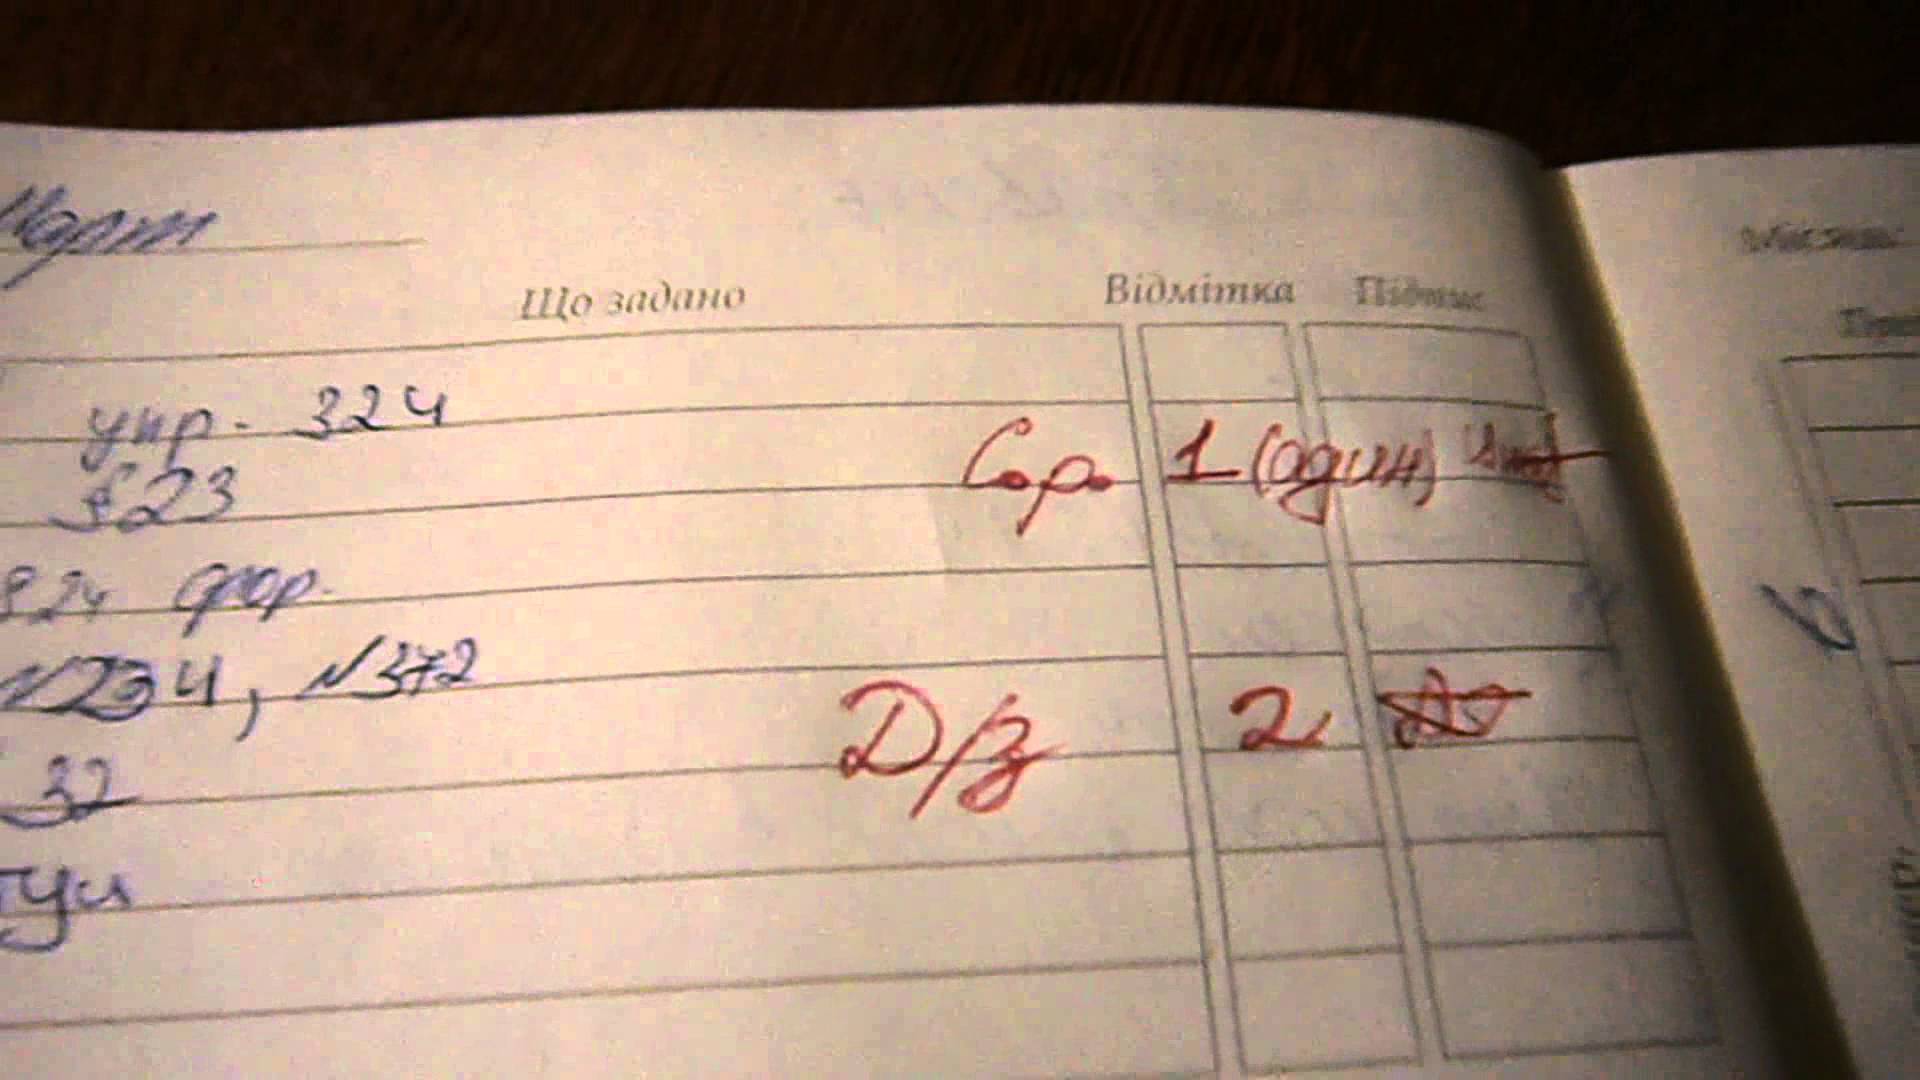 Март
Що задано Відмітка Підпис
упр. 324
§23 С.р. 1 (один)
§24 фор.
№234, №372
Д/з 2
32